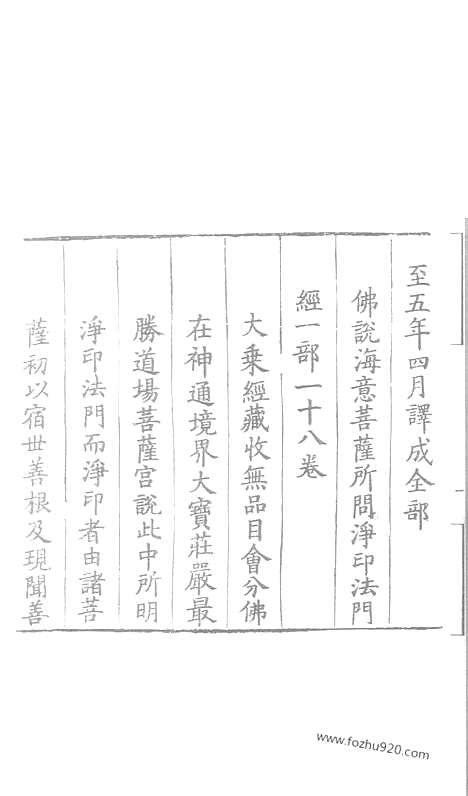 至五年四月譯成全部
佛說海意菩薩所問淨印法門
經一部一十八卷
大乘經藏收無品目會分佛
在神通境界大寶莊嚴最
勝道場菩薩宮說此中所明
淨印法門而淨印者由諸菩
薩初以宿世善根及現聞善
www.fozhu920.com